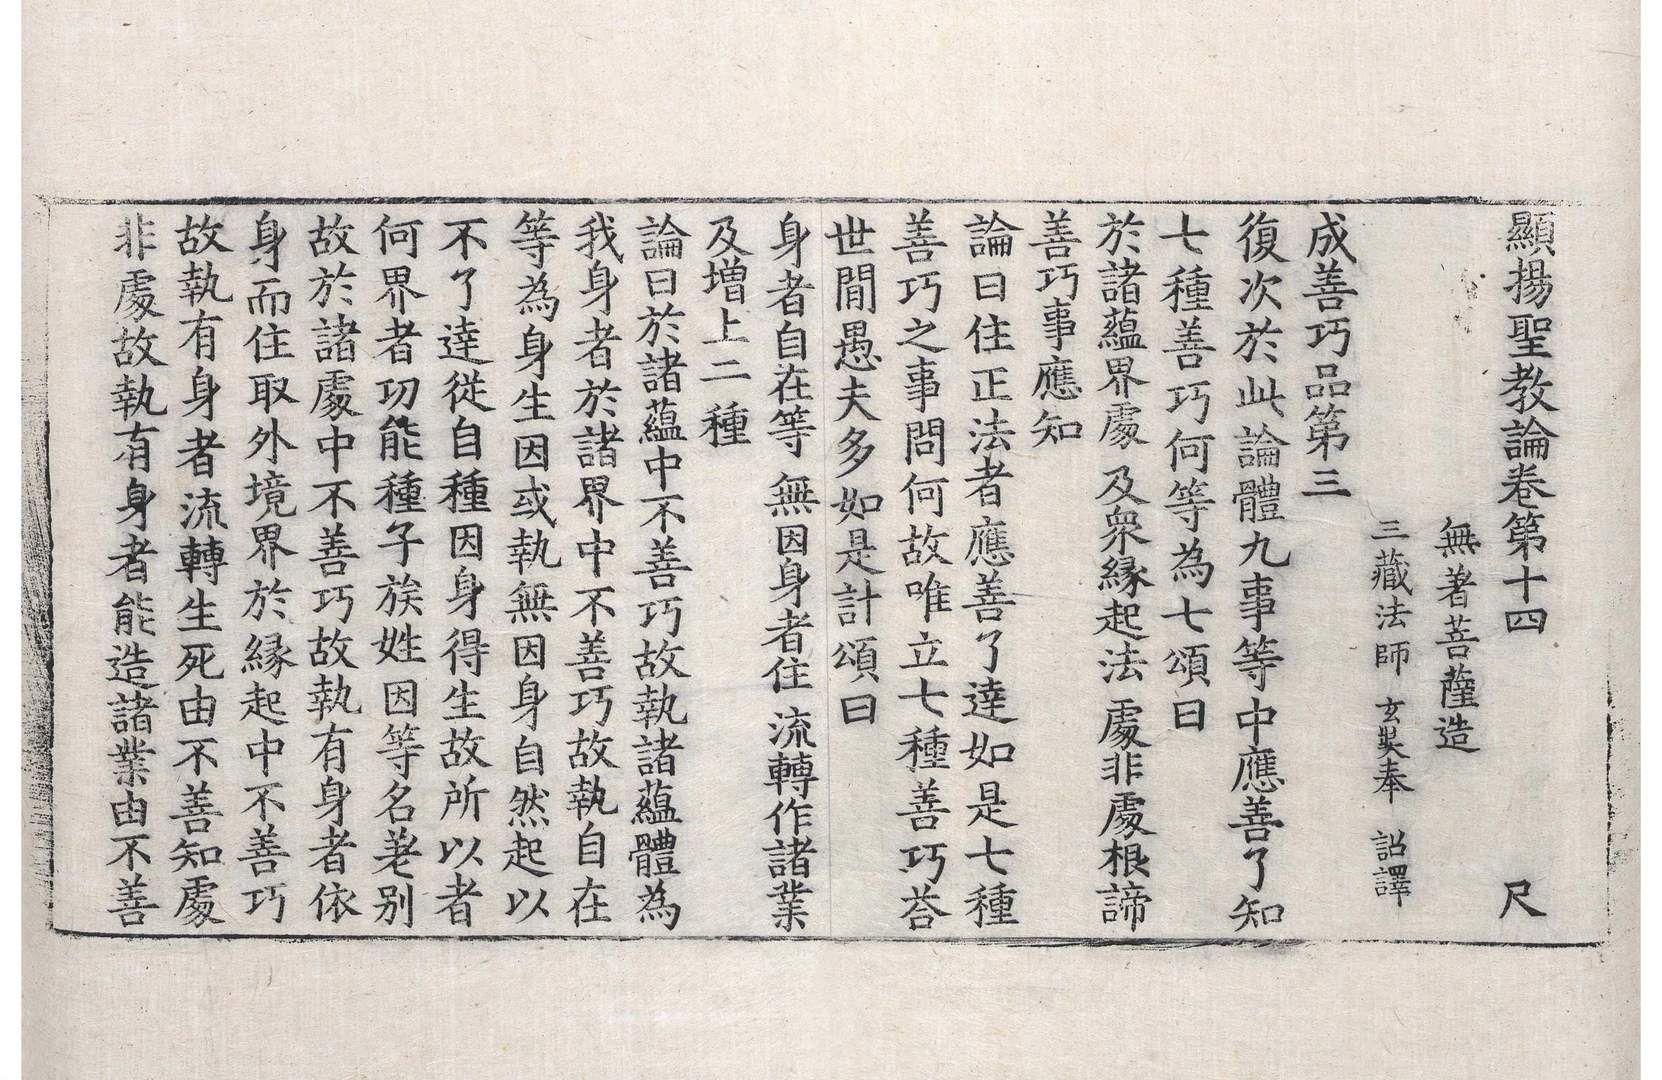 顯揚聖教論卷第十四 尺
無著菩薩造
三藏法師玄奘奉 詔譯
成善巧品第三
復次於此論體九事等中應善了知
七種善巧何等為七頌曰
於諸蘊界處 及衆縁起法 處非處根諦
善巧事應知
論曰住正法者應善了達如是七種
善巧之事問何故唯立七種善巧荅
世間愚夫多如是計頌曰
身者自在等 無因身者住 流轉作諸業
及增上二種
論曰於諸蘊中不善巧故執諸蘊體為
我身者於諸界中不善巧故執自在
等為身生因或執無因身自然起以
不了達從自種因身得生故所以者
何界者功能種子族姓因等名差別
故於諸處中不善巧故執有身者依
身而住取外境界於縁起中不善巧
故執有身者流轉生死由不善知處
非處故執有身者能造諸業由不善